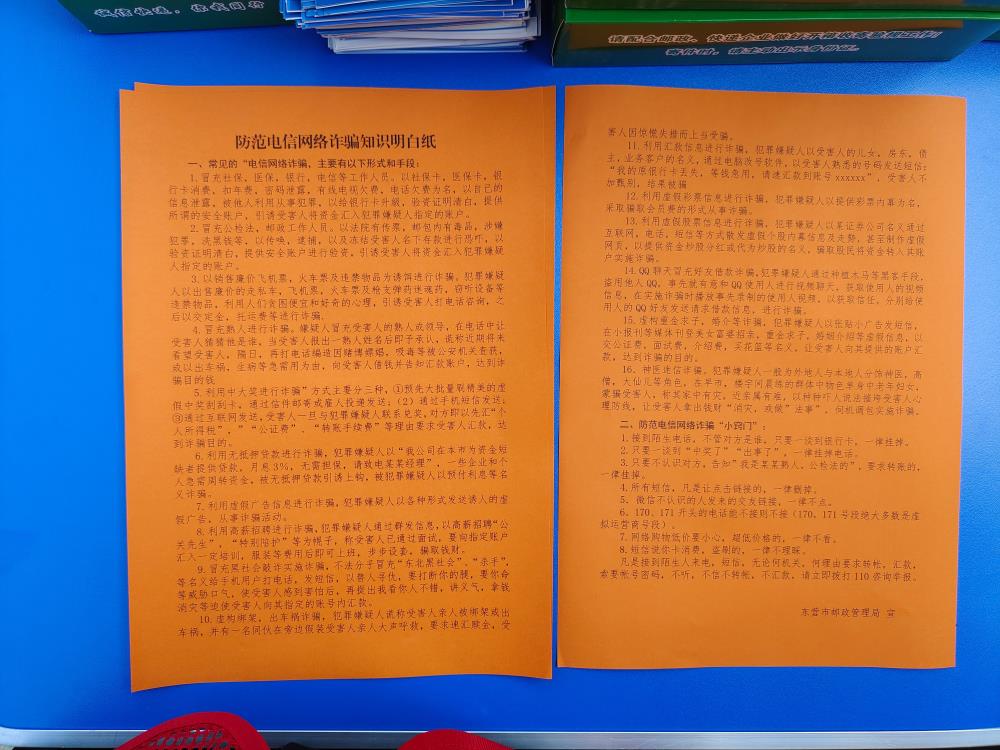 诚信快递,你我同行
请配合邮政、快递企业做好开箱收寄验视工作!
寄件时,请主动出示身份证。
防范电信网络诈骗知识明白纸
一、常见的“电信网络诈骗,主要有以下形式和手段:
1.冒充社保,医保,银行,电信等工作人员。以社保卡,医保卡,银
行卡消费,扣年费,密码泄露,有线电视欠费,电话欠费为名,以自己的
信息泄露,被他人利用从事犯罪,以给银行卡升级,验资证明清白,提供
所谓的安全账户,引诱受害人将资金汇入犯罪嫌疑人指定的账户。
2.冒充公检法,邮政工作人员。以法院有传票,邮包内有毒品,涉嫌
犯罪,洗黑钱等,以传唤,逮捕,以及冻结受害人名下存款进行恐吓,以
验资证明清白,提供安全账户进行验资,引诱受害人将资金汇入犯罪嫌疑
人指定的账户。
3.以销售廉价飞机票,火车票及违禁物品为诱饵进行诈骗,犯罪嫌疑
人以出售廉价的走私车,飞机票,火车票及枪支弹药迷魂药,窃听设备等
违禁物品,利用人们贪图便宜和好奇的心理,引诱受害人打电话咨询,之
后以交定金,托运费等进行诈骗。
4.冒充熟人进行诈骗。嫌疑人冒充受害人的熟人或领导,在电话中让
受害人猜猜他是谁,当受害人报出一熟人姓名后即予承认,谎称近期将来
看望受害人,隔日,再打电话编造因赌博嫖娼,吸毒等被公安机关查获,
或以出车祸,生病等急需用为由,向受害人借钱并告知汇款账户,达到诈
骗目的钱
5.利用中大奖进行诈骗”方式主要分三种,①预先大批量刷精美的虚
假中奖刮刮卡,通过信件邮寄或雇人投递发送;(2)通过手机短信发送;
③通过互联网发送,受害人一旦与犯罪嫌疑人联系兑奖,对方即以先汇“个
人所得税”,“公证费”、“转账手续费”等理由要求受害人汇款,达
到诈骗目的。
6.利用无抵押贷款进行诈骗,犯罪嫌疑人以“我公司在本市为资金短
缺老提供贷款,月息3%,无需担保,请致电某某经理”,一些企业和个
人急需周转资金,被无抵押贷款引诱上钩,被犯罪嫌疑人以预付利息等名
义诈骗。
7.利用虚假广告信息进行诈骗,犯罪嫌疑人以各种形式发送诱人的虚
假广告,从事诈骗活动。
8.利用高薪招聘进行诈骗,犯罪嫌疑人通过群发信息,以高薪招聘“公
关先生”,“特别陪护”等为幌子,称受害人已通过面试,要向指定账户
汇入一定培训,服装等费用后即可上班,步步设套,骗取钱财。
9.冒充黑社会敲诈实施诈骗,不法分子冒充“东北黑社会”,“杀手”,
等名义给手机用户打电话,发短信,以替人寻仇,要打断你的腿,要你命
等威胁口气,使受害人感到害怕后,再提出我看你人不错,讲义气,拿钱
消灾等迫使受害人向其指定的账号内汇款。
10.虚构绑架,出车祸诈骗,犯罪嫌疑人谎称受害人亲人被绑架或出
车祸,并有一名同伙在旁边假装受害人亲人大声呼救,要求速汇赎金,受
害人因惊慌失措而上当受骗。
11.利用汇款信息进行诈骗,犯罪嫌疑人以受害人的儿女,房东,债
主,业务客户的名义,通过电脑改号软件,以受害人熟悉的号码发送短信:
“我的原银行卡丢失,等钱急用,请速汇款到账号xxxxxx”,受害人不
加甄别,结果被骗
12.利用虚假彩票信息进行诈骗,犯罪嫌疑人以提供彩票内幕为名,
采取骗取会员费的形式从事诈骗。
13.利用虚假股票信息进行诈骗,犯罪嫌疑人以某证券公司名义通过
互联网,电话,短信等方式散发虚假个股内幕信息及走势,甚至制作虚假
网页,以提供资金炒股分红或代为炒股的名义,骗取股民将资金转入其账
户实施诈骗。
14.QQ聊天冒充好友借款诈骗,犯罪嫌疑人通过种植木马等黑客手段,
盗用他人QQ,事先就有意和QQ使用人进行视频聊天,获取使用人的视频
信息,在实施诈骗时播放事先录制的使用人视频,以获取信任,分别给使
用人的QQ好友发送请求借款信息,进行诈骗。
15.虚构重金求子,婚介等诈骗,犯罪嫌疑人以张贴小广告发短信,
在小报刊等媒体刊登美女富婆招亲,重金求子,婚姻介绍等虚假信息,以
交公证费,面试费,介绍费,买花篮等名义,让受害人向其提供的账户汇
款,达到诈骗的目的。
16.神医迷信诈骗,犯罪嫌疑人一般为外地人与本地人分饰神医,高
僧,大仙儿等角色,在早市,楼宇间晨练的群体中物色单身中老年妇女,
蒙骗受害人,称其家中有灾,近亲属有难,以种种吓人说法摧垮受害人心
理防线,让受害人拿出钱财“消灾,或做”法事”,伺机调包实施诈骗。
二、防范电信网络诈骗“小窍门”:
1.接到陌生电话,不管对方是谁,只要一谈到银行卡,一律挂掉。
2.只要一谈到“中奖了”“出事了”,一律挂掉电话。
3.只要不认识对方,告知”我是某某熟人,公检法的”,要求转账的,
一律挂掉。
4.所有短信,凡是让点击链接的,一律删掉。
5、微信不认识的人发来的交友链接,一律不点。
6、170、171开头的电话能不接则不接(170、171号段绝大多数是虚
拟运营商号段)。
7.网络购物低价要小心,超低价格的,一律不看。
8.短信说你卡消费,盗刷的,一律不理睬。
凡是接到陌生人来电,短信,无论何机关,何理由要求转帐,汇款,
索要帐号密码,不听,不信不转帐,不汇款,请立即拨打110咨询举报。
东营市邮政管理局 宣